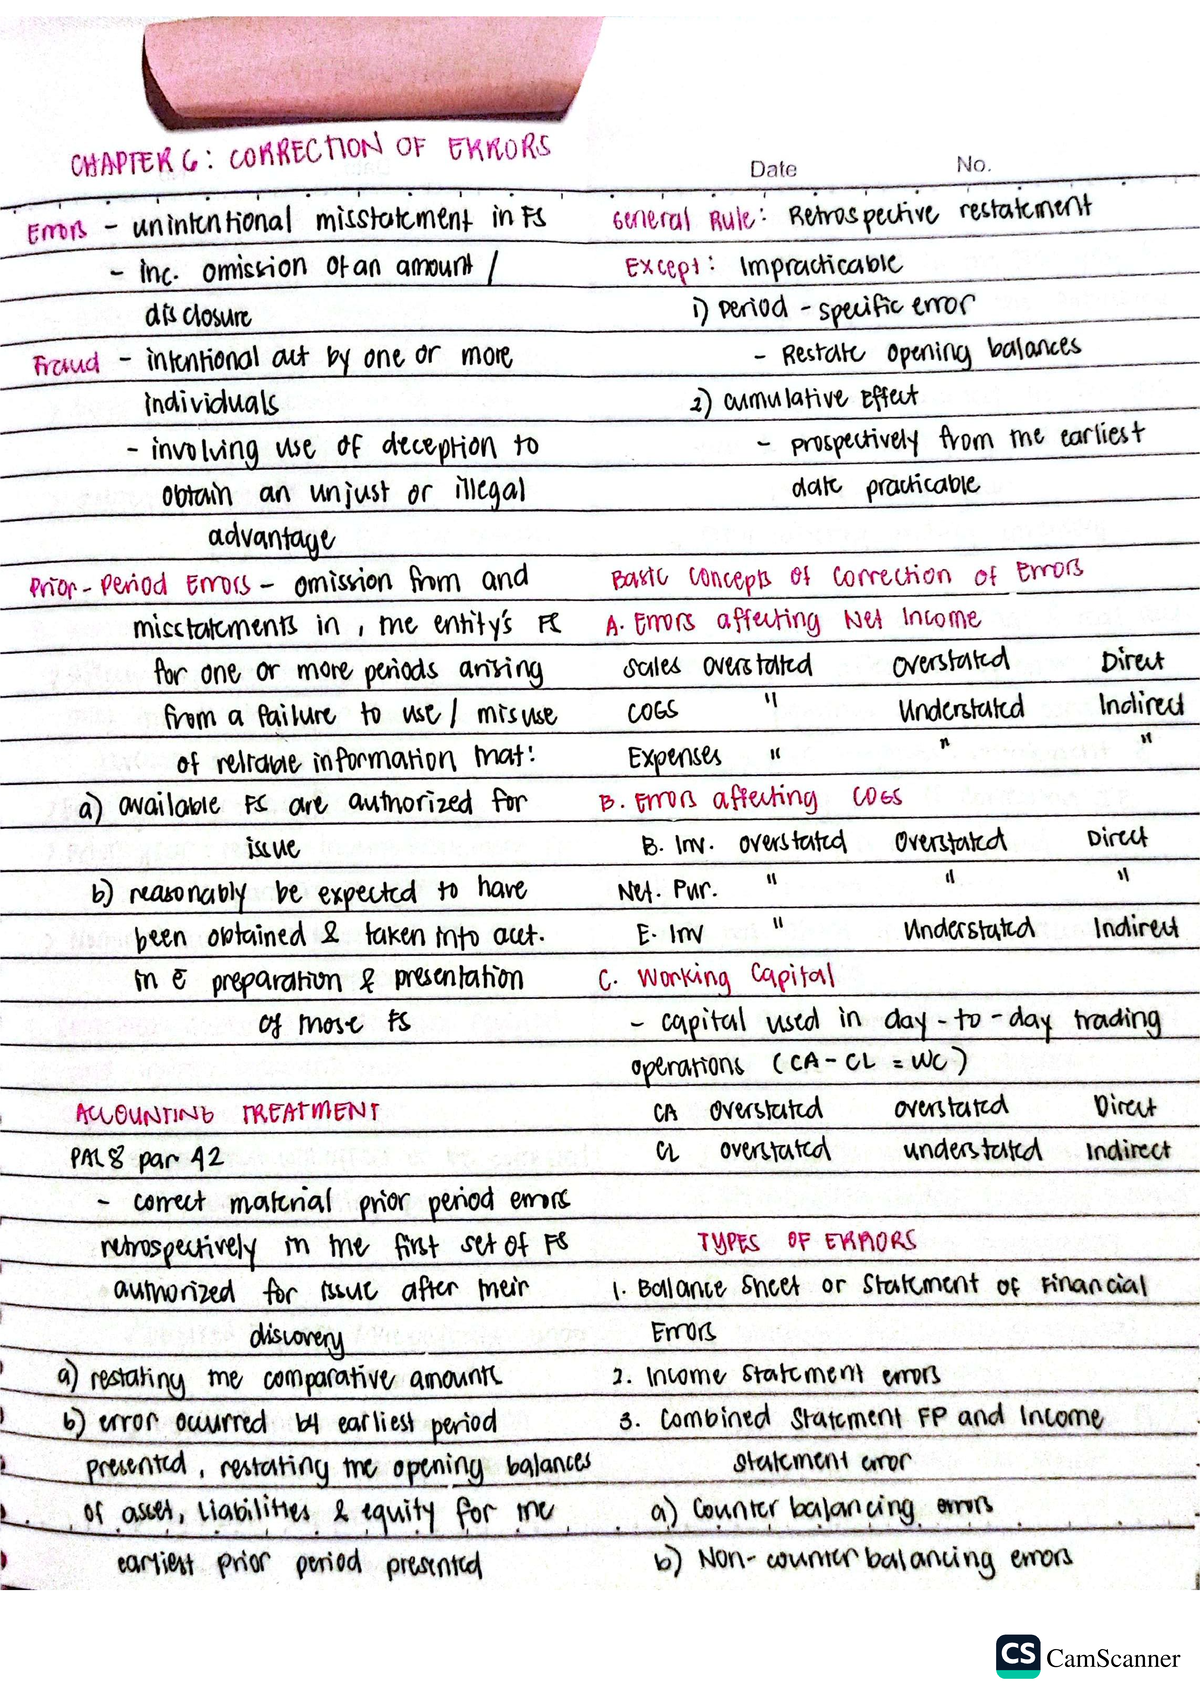 CHAPTER 6: CORRECTION OF ERRORS
Errors - unintentional misstatement in FS
- inc. omission of an amount /
disclosure
Fraud - intentional act by one or more
individuals
- involving use of deception to
obtain an unjust or illegal
advantage
Prior-Period Errors - omission from and
misstatements in, the entity's FS
for one or more periods arising
from a failure to use / misuse
of reliable information that:
a) available FS are authorized for
issue
b) reasonably be expected to have
been obtained & taken into acct.
in preparation & presentation
of those FS
ACCOUNTING TREATMENT
PAS 8 par 42
- correct material prior period errors
retrospectively in the first set of FS
authorized for issue after their
discovery
a) restating the comparative amounts
b) error occurred b4 earliest period
presented, restating the opening balances
of asset, liabilities & equity for the
earliest prior period presented
Date No.
General Rule: Retrospective restatement
Except: Impracticable
1) Period - specific error
- Restate opening balances
2) cumulative Effect
- prospectively from the earliest
date practicable
Basic Concepts of Correction of Errors
A. Errors affecting Net Income
Sales overstated Overstated Direct
COGS " Understated Indirect
Expenses " " "
B. Errors affecting COGS
B. Inv. overstated Overstated Direct
Net. Pur. " " "
E. Inv " Understated Indirect
C. Working Capital
- capital used in day-to-day trading
operations (CA - CL = WC)
CA overstated overstated Direct
CL overstated understated Indirect
TYPES OF ERRORS
1. Ballance Sheet or Statement of Financial
Errors
2. Income Statement errors
3. Combined Statement FP and Income
statement error
a) Counter balancing errors
b) Non-counter balancing errors
CS CamScanner